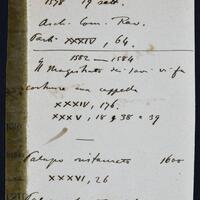 1578 19 sett.
Arch. Com. Rav.
Parti XXXIV, 64.
1582 – 1584
Il Magistrato dei Savi vi fa
costruire una cappella
XXXIV, 176.
XXXV, 18 38 39
Palazzo restaurato 1600
XXXVI, 26